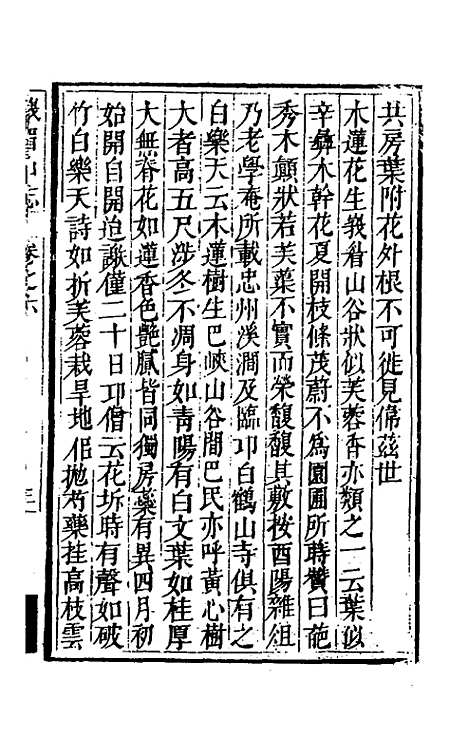 共房葉附花外根不可徙見傷茲世
木蓮花生峩眉山谷狀似芙蓉香亦類之一云葉似
辛彝木幹花夏開枝條茂蔚不為園圃所蒔贊曰葩
秀木顛狀若芙蕖不實而榮馥馥其敷按酉陽雜俎
乃老學庵所載忠州溪澗及臨卭白鶴山寺俱有之
白樂天云木蓮樹生巴峽山谷間巴民亦呼黃心樹
大者高五尺涉冬不凋身如青陽有白文葉如桂厚
大無脊花如蓮香色艷膩皆同獨房蘂有異四月初
始開自開迨謝僅二十日卭僧云花坼時有聲如破
竹白樂天詩如折芙蓉栽旱地似拋芍藥挂高枝雲
卷之六